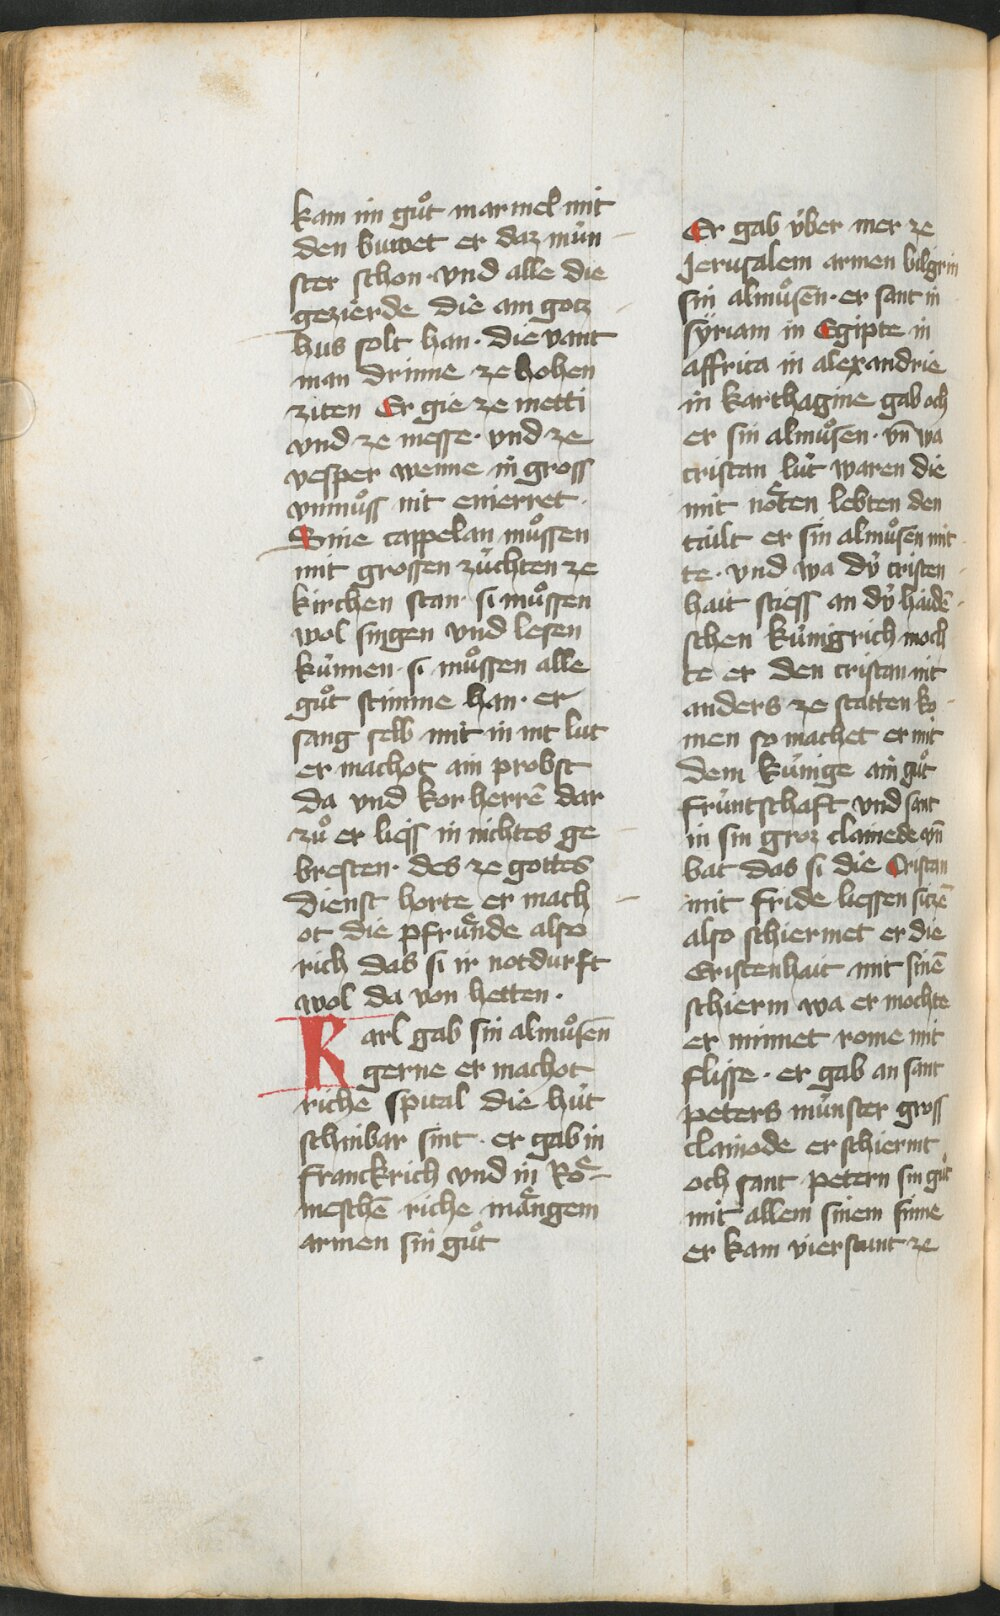 kam im guͦt marmel mit
den buwet er daz mún
ster schon · vnd alle die
gezierde die am gotz
hus solt han · die vant
man drinne ze hohen
ziten Er gie ze metti
vnd ze messe · vnd ze
vesper wenne in gross
vnmuͦss nit enierret ·
Sine cappelan muͦssen
mit grossen zúchten ze
kirchen stan · si muͦssen
wol singen vnd lesen
kúnnen · si muͦssen alle
guͦt stimme han · er
sang selb mit in nit lut
er machot ain probst
da vnd korherrē dar
zuͦ er liess in nichtes ge
bresten · des ze gottes
dienst horte er mach
ot die pfruͤnde also
rich das si ir notdurft
wol da von hetten ·
Karl gab sin almuͦsen
gerne er machot
riche spital die hút
schinbar sint · er gab in
franckrich vnd in Roͤ
meschē riche maͤngem
armen sin guͦt
Er gab úber mer ze
Jerusalem armen bilgrin
sin almuͦsen · er sant in
syriam in Egipte in
affrica in alexandrie
in karthagine gab och
er sin almuͦsen · vn̄ wa
cristan lút waren die
mit noͤten lebten den
tailt er sin almuͦsen mit
te · vnd wa dý cristen
hait stiess an dý haidē
schen kúnigrich moch
te er den cristan nit
anders ze statten ko
men so machet er mit
dem kúnige ain guͦt
frúntschaft vnd sant
in sin groz clainede vn̄
bat das si die Cristan
mit fride liessen sitzē
also schiermet er die
Cristenhait mit sinē
schierm wa er mochte
er minnet rome mit
flisse · er gab an sant
peters múnster gross
clainode er schiermt
och sant petern sin guͦt
mit allem sinem sinne
er kam vierstunt ze